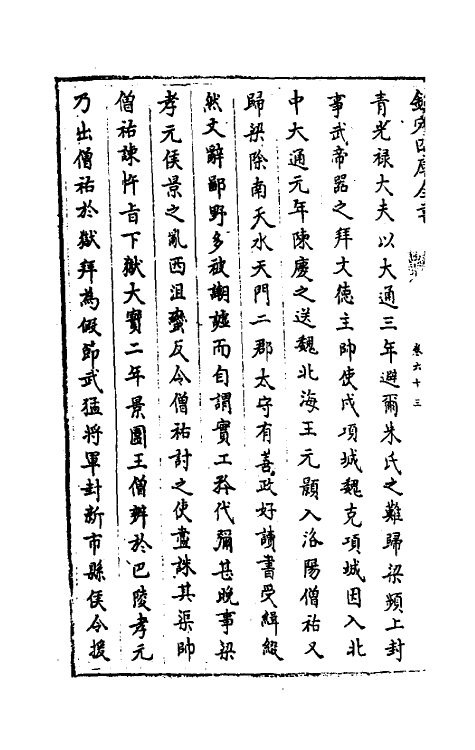 欽定四庫全書
卷六十三
青光禄大夫以大通三年避爾朱氏之難歸梁頻上封
事武帝器之拜文徳主帥使戍項城魏克項城因入北
中大通元年陳慶之送魏北海王元顥入洛陽僧祐又
歸梁除南天水天門二郡太守有善政好讀書愛緝綴
然文辭鄙野多被謿謔而自謂實工矜伐彌甚晚事梁
孝元侯景之亂西沮蠻反令僧祐討之使盡誅其渠帥
僧祐諫忤旨下獄大寳二年景圍王僧辨於巴陵孝元
乃出僧祐於獄拜為假節武猛將軍封新市縣侯令援